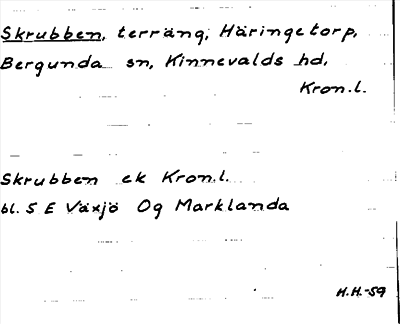 Skrubben, terräng, Häringetorp,
Bergunda sn, Kinnevalds hd,
Kron.l.
Skrubben ek Kron.l.
bl. 5 E Växjö Og Marklanda
H.H.-59